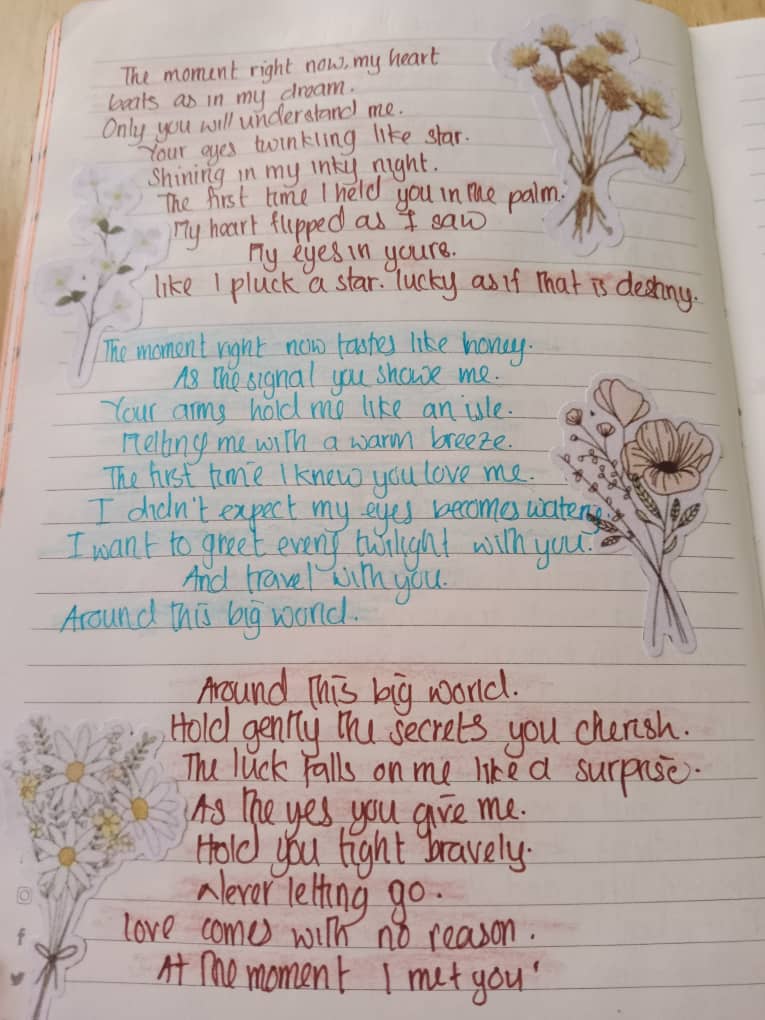 The moment right now, my heart
beats as in my dream.
Only you will understand me.
Your eyes twinkling like star.
Shining in my inky night.
The first time I held you in the palm.
My heart flipped as I saw
My eyes in yours.
like I pluck a star. lucky as if that is destiny.
The moment right now tastes like honey.
As the signal you showe me.
Your arms hold me like an isle.
Melting me with a warm breeze.
The first time I knew you love me.
I didn't expect my eyes becomes watery.
I want to greet every twilight with you.
And travel with you.
Around this big world.
Around this big world.
Hold gently the secrets you cherish.
The luck falls on me like a surprise.
As the yes you give me.
Hold you tight bravely.
Never letting go.
love comes with no reason.
At the moment I met you'